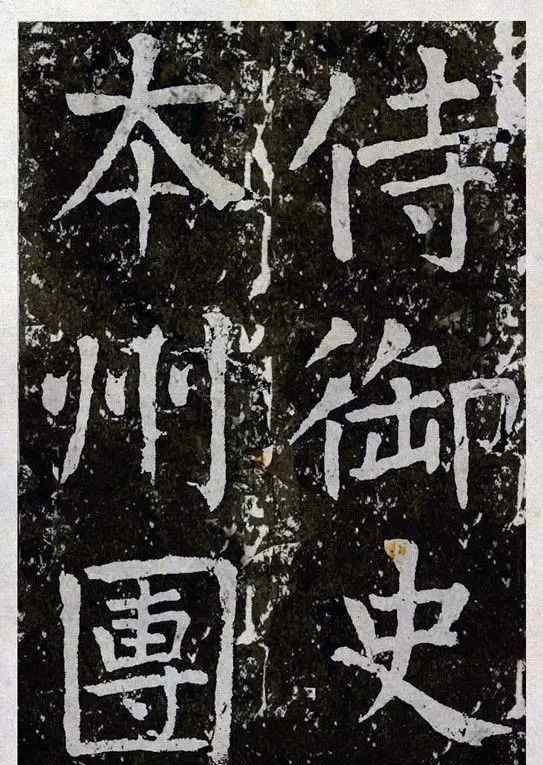 侍御史
本州團